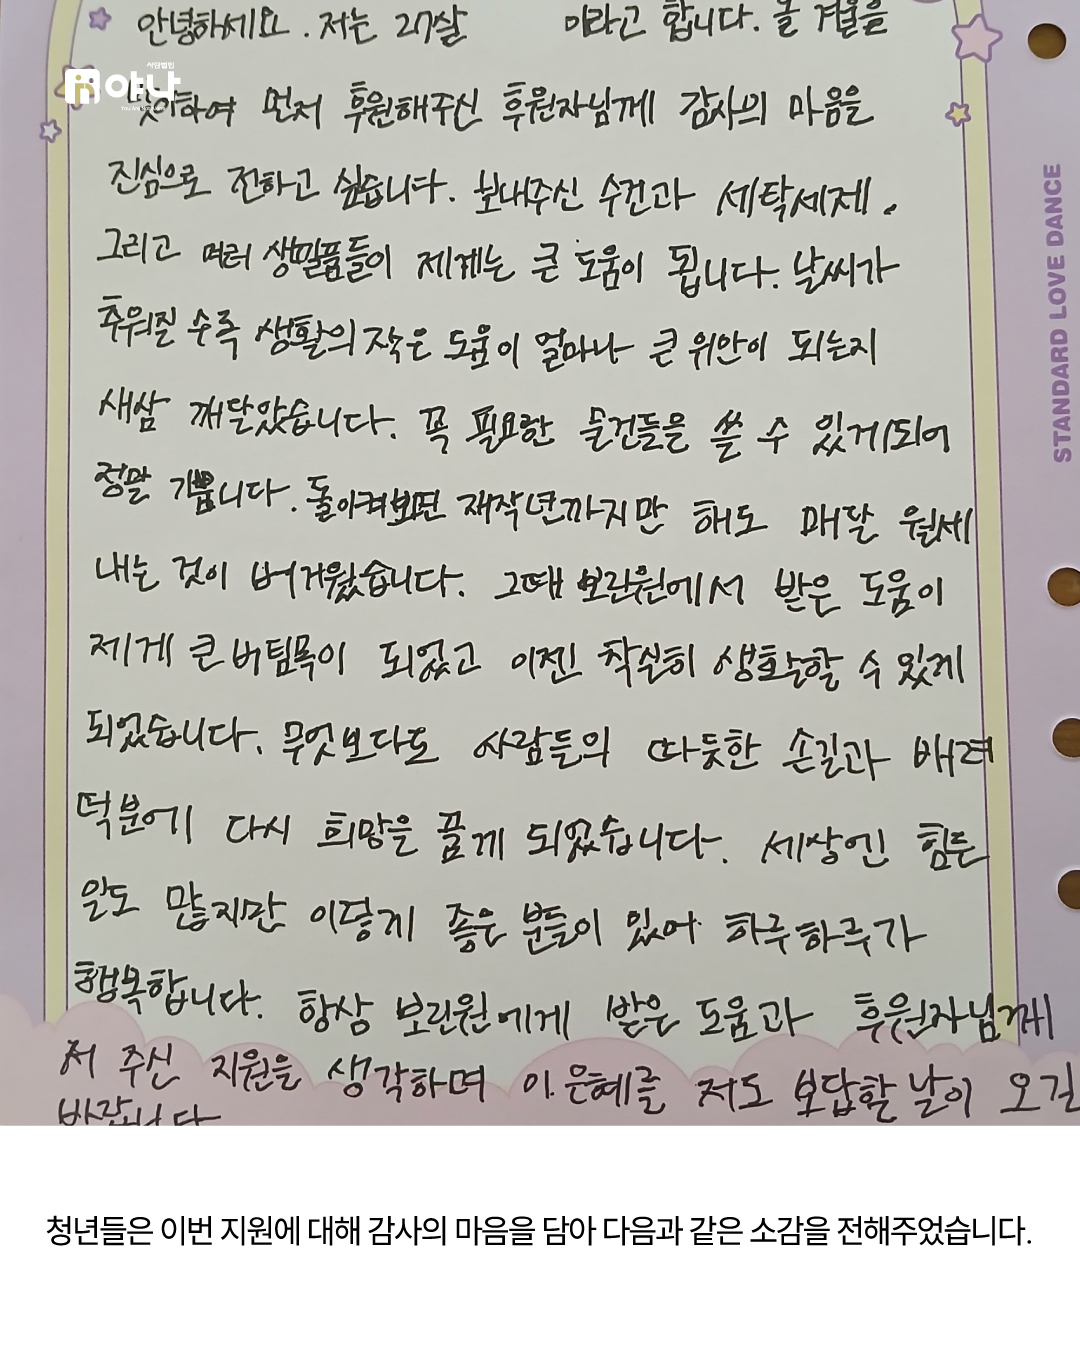 안녕하세요. 저는 27살 이라고 합니다. 올 겨울을
사단법인
야나
맞이하여 먼저 후원해주신 후원자님께 감사의 마음을
진심으로 전하고 싶습니다. 보내주신 수건과 세탁세제,
그리고 여러 생필품들이 제게는 큰 도움이 됩니다. 날씨가
추워질 수록 생활의 작은 도움이 얼마나 큰 위안이 되는지
새삼 깨달았습니다. 꼭 필요한 물건들을 쓸 수 있게되어
정말 기쁩니다. 돌이켜보면 재작년까지만 해도 매달 월세
내는 것이 버거웠습니다. 그때 보린원에서 받은 도움이
제게 큰 버팀목이 되었고 이젠 착실히 생활할 수 있게
되었습니다. 무엇보다도 사람들의 따듯한 손길과 배려
덕분에 다시 희망을 꿈게 되었습니다. 세상엔 힘든
일도 많지만 이렇게 좋은 분들이 있어 하루하루가
행복합니다. 항상 보린원에게 받은 도움과 후원자님께
서 주신 지원을 생각하며 이 은혜를 저도 보답할 날이 오길
바랍니다
STANDARD LOVE DANCE
청년들은 이번 지원에 대해 감사의 마음을 담아 다음과 같은 소감을 전해주었습니다.